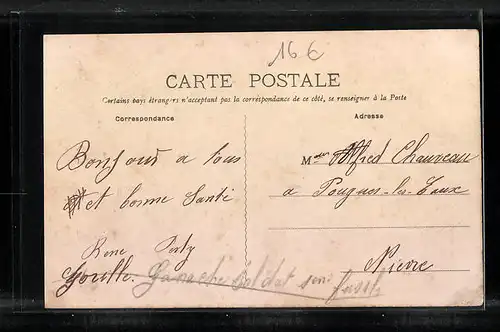 16 €
CARTE POSTALE
Certains pays étrangers n'acceptant pas la correspondance de ce côté, se renseigner à la Poste
Correspondance
Adresse
Bonjour a tous
et bonne Santé
Rene
M Alfred Chauveau
a Pougues-les-Eaux
Nievre